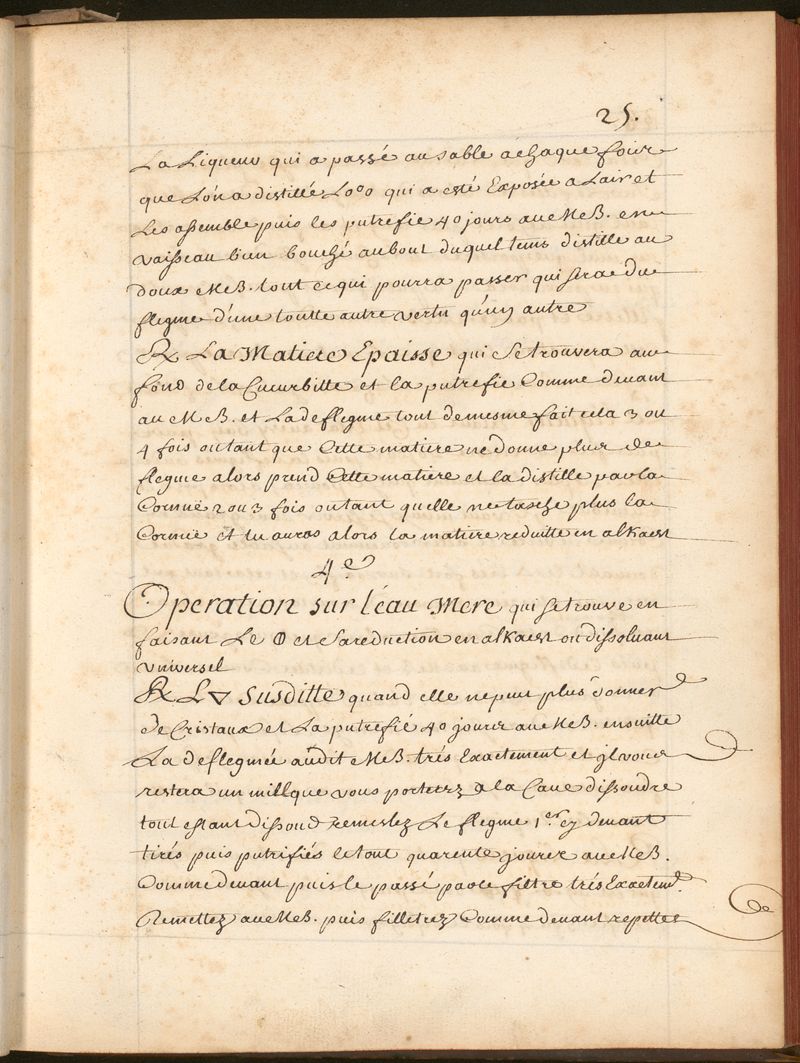 25.
La Liqueur qui a passé au sable a chaque foix
que Lon a distillé L'oo qui a esté Exposée a Lair et
Les assemble puis les putrefie 40 jours au M B. en
vaisseau bien bouché au bout duquel tems distille au
doux M B. tout ce qui pourra passer qui sera du
flegme d'une toutte autre vertu qu'un autre
℞ La Matiere Epaisse qui se trouvera au
fond de la Cucurbitte et la putrefie Comme devant
au M B. et La deflegme tout de mesme fait cela 3 ou
4 fois ou tant que Cette matiere ne donne plus de
flegme alors prend Cette matiere et la distille par la
Cornuë 2 ou 3 fois ou tant quelle ne tache plus la
Cornuë et tu auras alors la matiere reduitte en alkaest
4e
Operation sur l'eau Mere qui se trouve en
faisant Le 🜕 et sa reduction en alkaest ou dissoluant
vniversel
℞ L 🜄 susditte quand elle ne peut plus donner
de Cristaux et La putrefié 40 jours au M B. ensuitte
La deflegmée audit M B. trés Exactement et il vous
restera un mill que vous porterez a la Cave dissoudre
tout estant dissoud remeslez Le flegme 1er cy devant
tirés puis putrifiés le tout quarente jours au M B.
Comme devant puis le passé par le filtre trés Exactemt.
Remettez au M B. puis filletrez Comme devant repettez
de